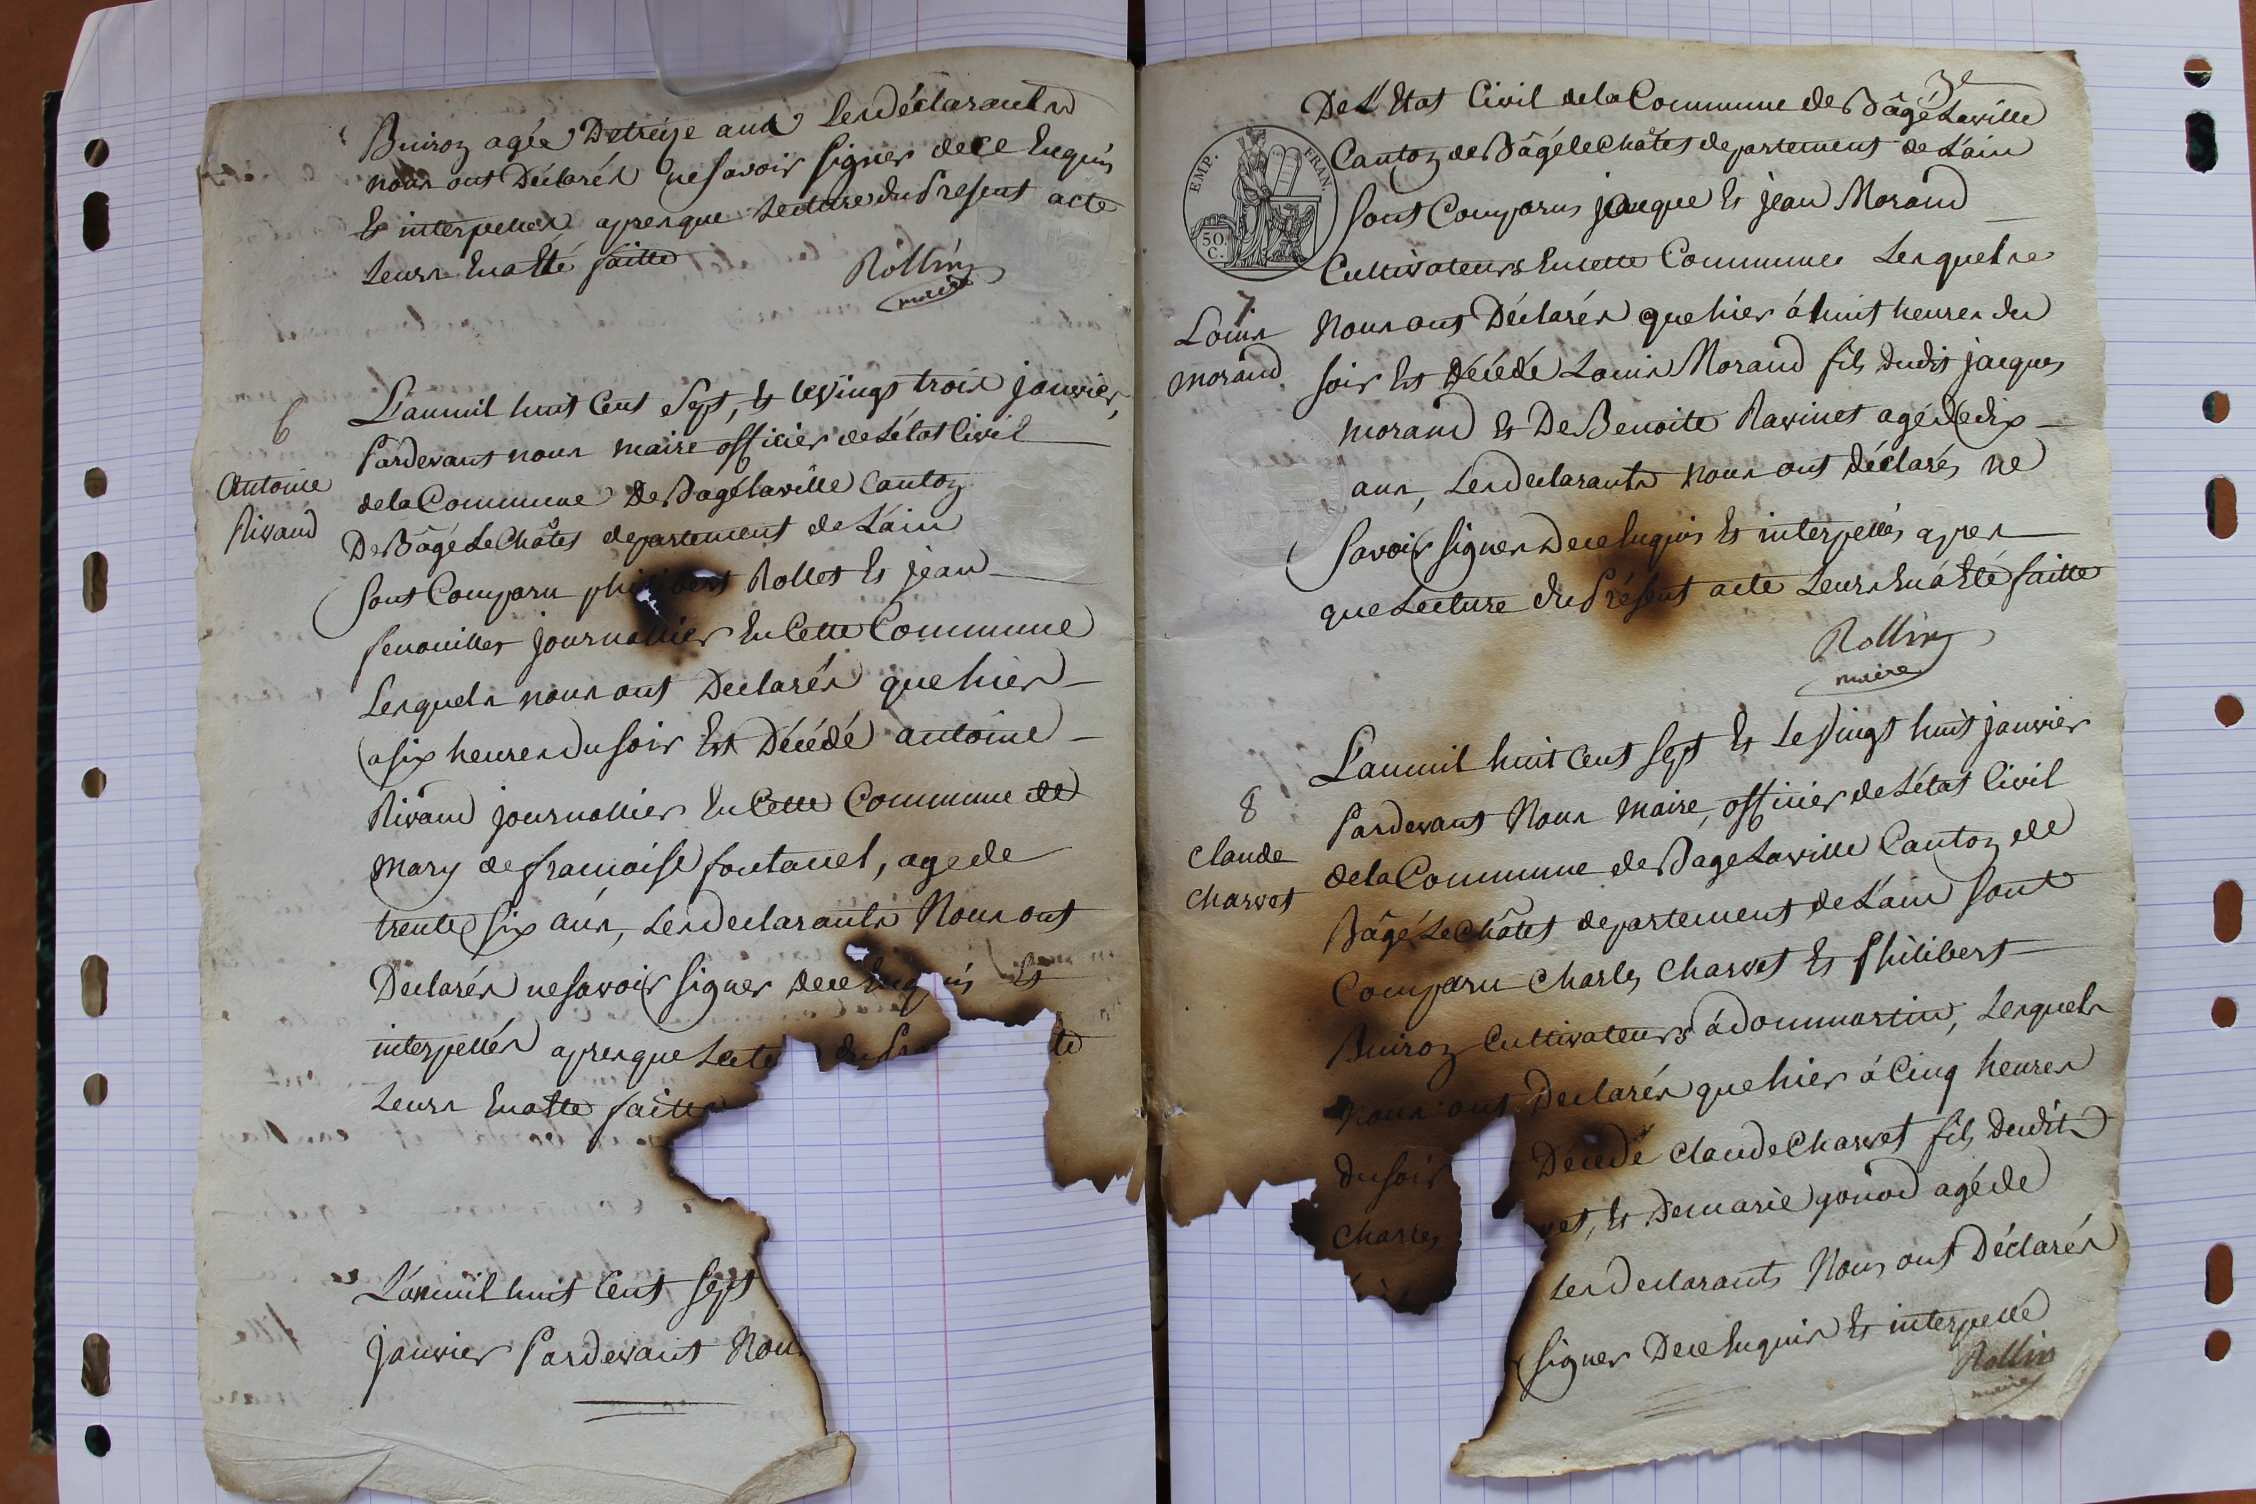 Buiron agée De treize ans Les déclarants
nous ont Déclarés ne savoir signer de ce Enquis
Et interpellés apres que Lecture du Present acte
Leurs En a Eté faitte
Rollin
maire
6
Antoine
Rivaud
L'an mil huit Cent Sept, Et le Vingt trois janvier,
Pardevant nous maire officier de L'état Civil
de la Commune De Bagé Laville Canton
De Bâgé Le Châtel departement de L'ain
sont Comparu Rollet Et jean
fenouillet journallier En Cette Commune
Lesquels nous ont Declarés que hier
a six heures Du soir Est Décédé antoine
Rivaud journallier En Cette Commune de
mary de francoise fontanel, age de
trente six ans, Les declarants Nous ont
Declarés ne savoir signer de ce Enquis Et
interpellés apres que Lect du Pre te
Leurs En a Ette faitte
L'an mil huit Cent Sept
janvier Pardevant Nou
3e
De L'Etat Civil de la Commune de Bâgé Laville
Canton de Bâgé le Châtel departement de L'ain
EMP. FRAN.
50. C.
sont Comparus jacque Et jean Morand
Cultivateurs En cette Commune Lesquels
7
Louis
morand
Nous ont Déclarés que hier á huit heures du
soir Est Décédé Louis Morand fils dudit jacques
morand Et De Benoite Ravinet agé De dix
ans, Les declarants nous ont déclarés ne
Savoir signer De ce Enquis Et interpellés apres
que Lecture du Présent acte Leurs En á Eté faitte
Rollin
maire
8
Claude
Charvet
L'an mil huit Cent Sept Et Le Vingt huit janvier
Pardevant Nous Maire, officier de L'état Civil
de la Commune de Bage Laville Canton de
Bâgé Le Châtel departement de L'ain sont
Comparu Charles Charvet Et Philibert
Buiron Cultivateurs á dommartin, Lesquels
nous ont Declarés que hier á Cinq heures
du soir Décédé Claude Charvet fils dudit
Charles vet, Et De marie gonod agé de
Les Declarants Nous ont Déclarés
signer De ce Enquis Et interpellé
Rollin
maire